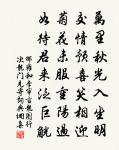 萬里秋光入坐明
交情預喜笑相迎
菊花未服重陽過
如待君來泛巨觥
邵雍和李審言龍圖行
次龍門見寄詩詞典調集